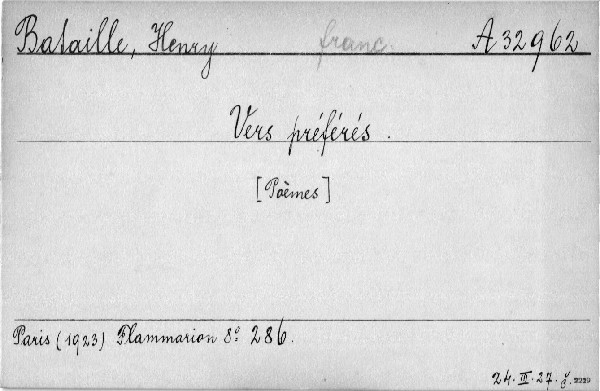 Bataille, Henry franc. A 32962
Vers préférés.
[Poèmes]
Paris (1923) Flammarion 8º 286.
24. III. 27. J.